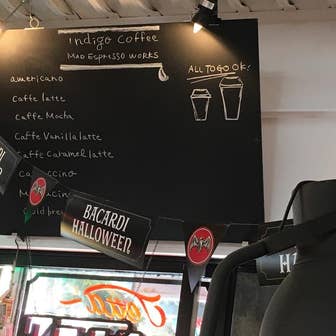 Indigo Coffee
MAD ESPRESSO WORKS
ALL TO GO OK!
americano
Caffe latte
Caffe Mocha
Caffe Vanilla latte
Caffe Caramel latte
BACARDI
HALLOWEEN